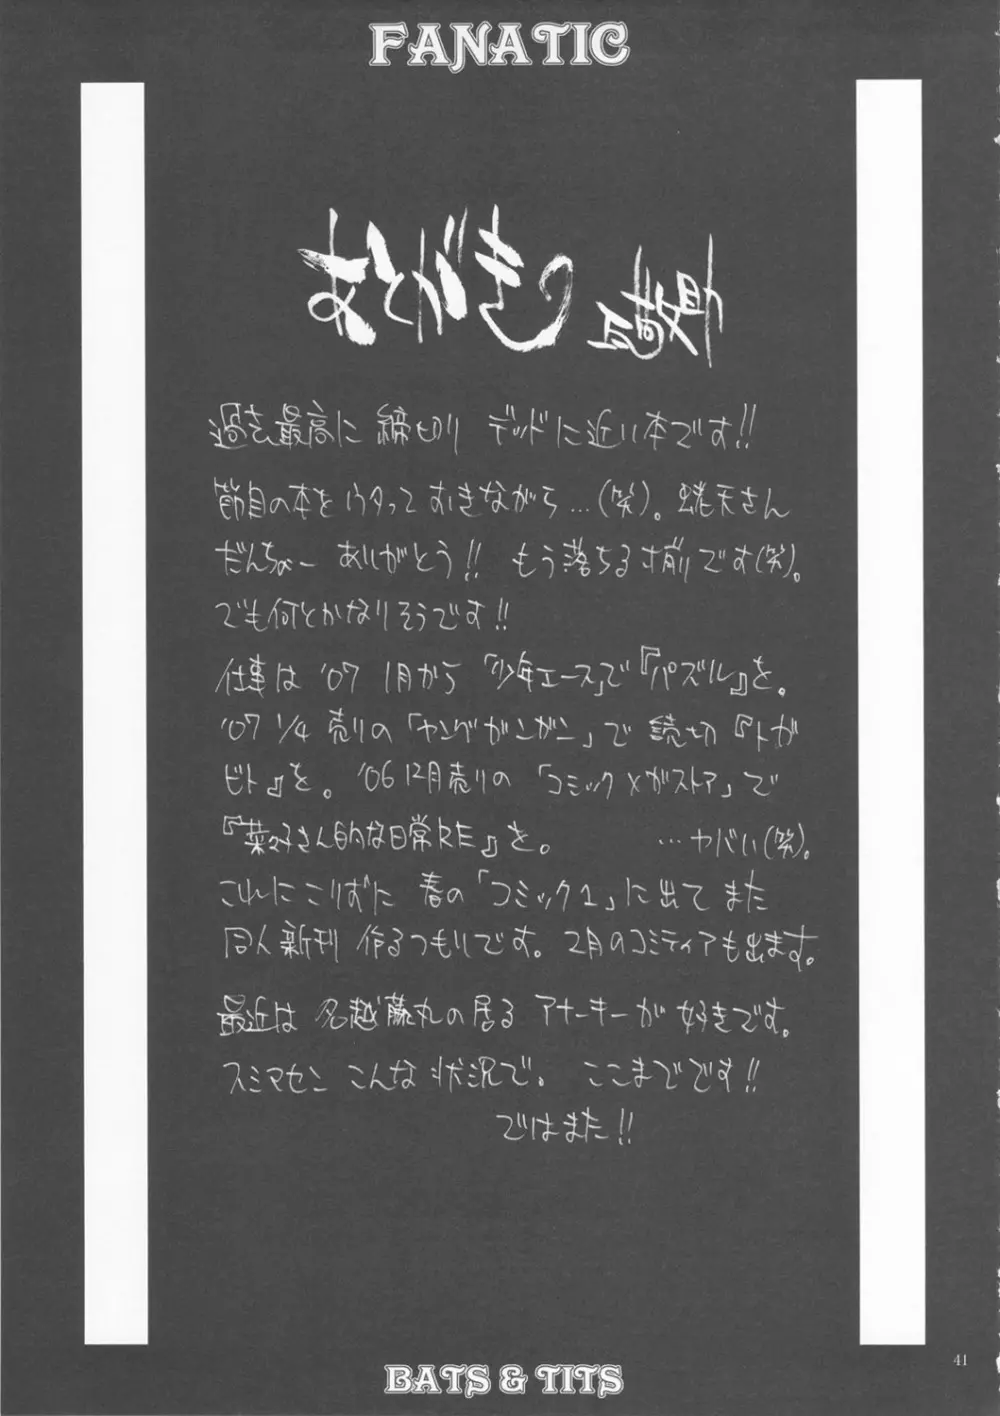 FANATIC
あとがき 瓦敬助
過去最高に 締切り デッドに近い本です!!
節目の本を ウタって おきながら…(笑)。 蜷天さん
だんちょー ありがとう!! もう落ちる寸前です(笑)。
でも何とかなりそうです!!
仕事は '07 1月から 「少年エース」で『パズル』を。
'07 1/4 売りの「ヤングガンガン」で 読切『トガ
ビト』を。 '06 12月売りの 「コミック×ガストア」で
『菜々子さん的な日常RE』を。 …ヤバい(笑)。
これにこりずに 春の「コミック1」に出て また
同人新刊 作るつもりです。 2月のコミティアも出ます。
最近は 名越藤丸の居る アナーキーが 好きです。
スミマセン こんな 状況で。 ここまでです!!
ではまた!!
BATS & TITS
41